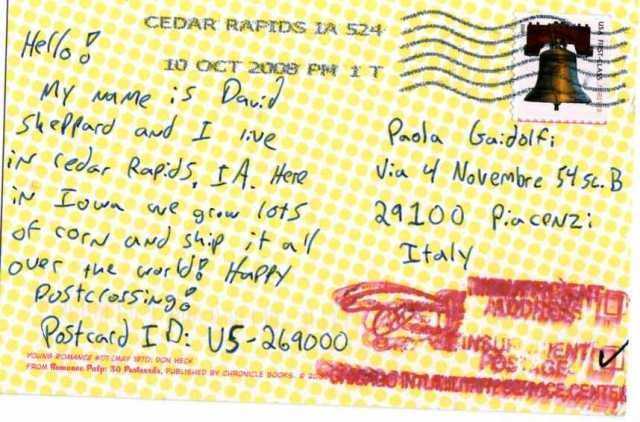 CEDAR RAPIDS IA 524
10 OCT 2008 PM 1 T
USA FIRST-CLASS
Hello!
My name is David
Sheppard and I live
in Cedar Rapids, IA. Here
in Iowa we grow lots
of corn and ship it all
over the world! Happy
Postcrossing!
Postcard ID: US-269000
Paola Gaidolfi
Via 4 Novembre 54 sc. B
29100 Piacenzi
Italy
INSUFFICIENT
ADDRESS
INSUFFICIENT
POSTAGE
CHICAGO INTL MILITARY SERVICE CENTER
YOUNG ROMANCE #171 (MAY 1971): DON HECK
FROM Romance Pulp: 30 Postcards, PUBLISHED BY CHRONICLE BOOKS. ©